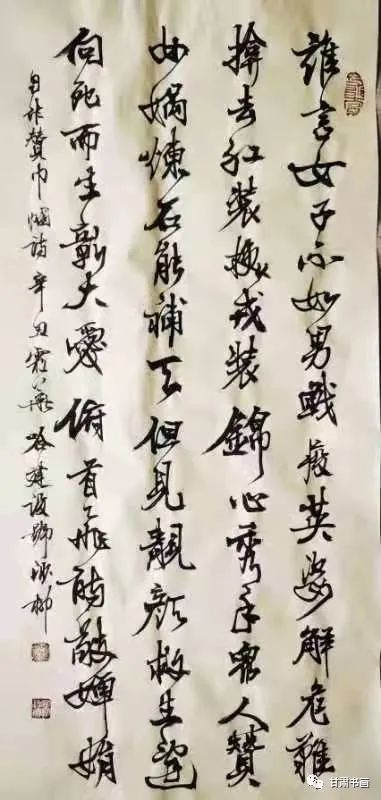 誰言女子不如男戰疫英姿解危難
去红装換戎装錦心秀手眾人贊
女媧煉石能補天但見靚顏救生還
向死而生彰大愛俯首飛觴敬嬋娟
自作贊巾幗詩辛丑建设
甘肃书画